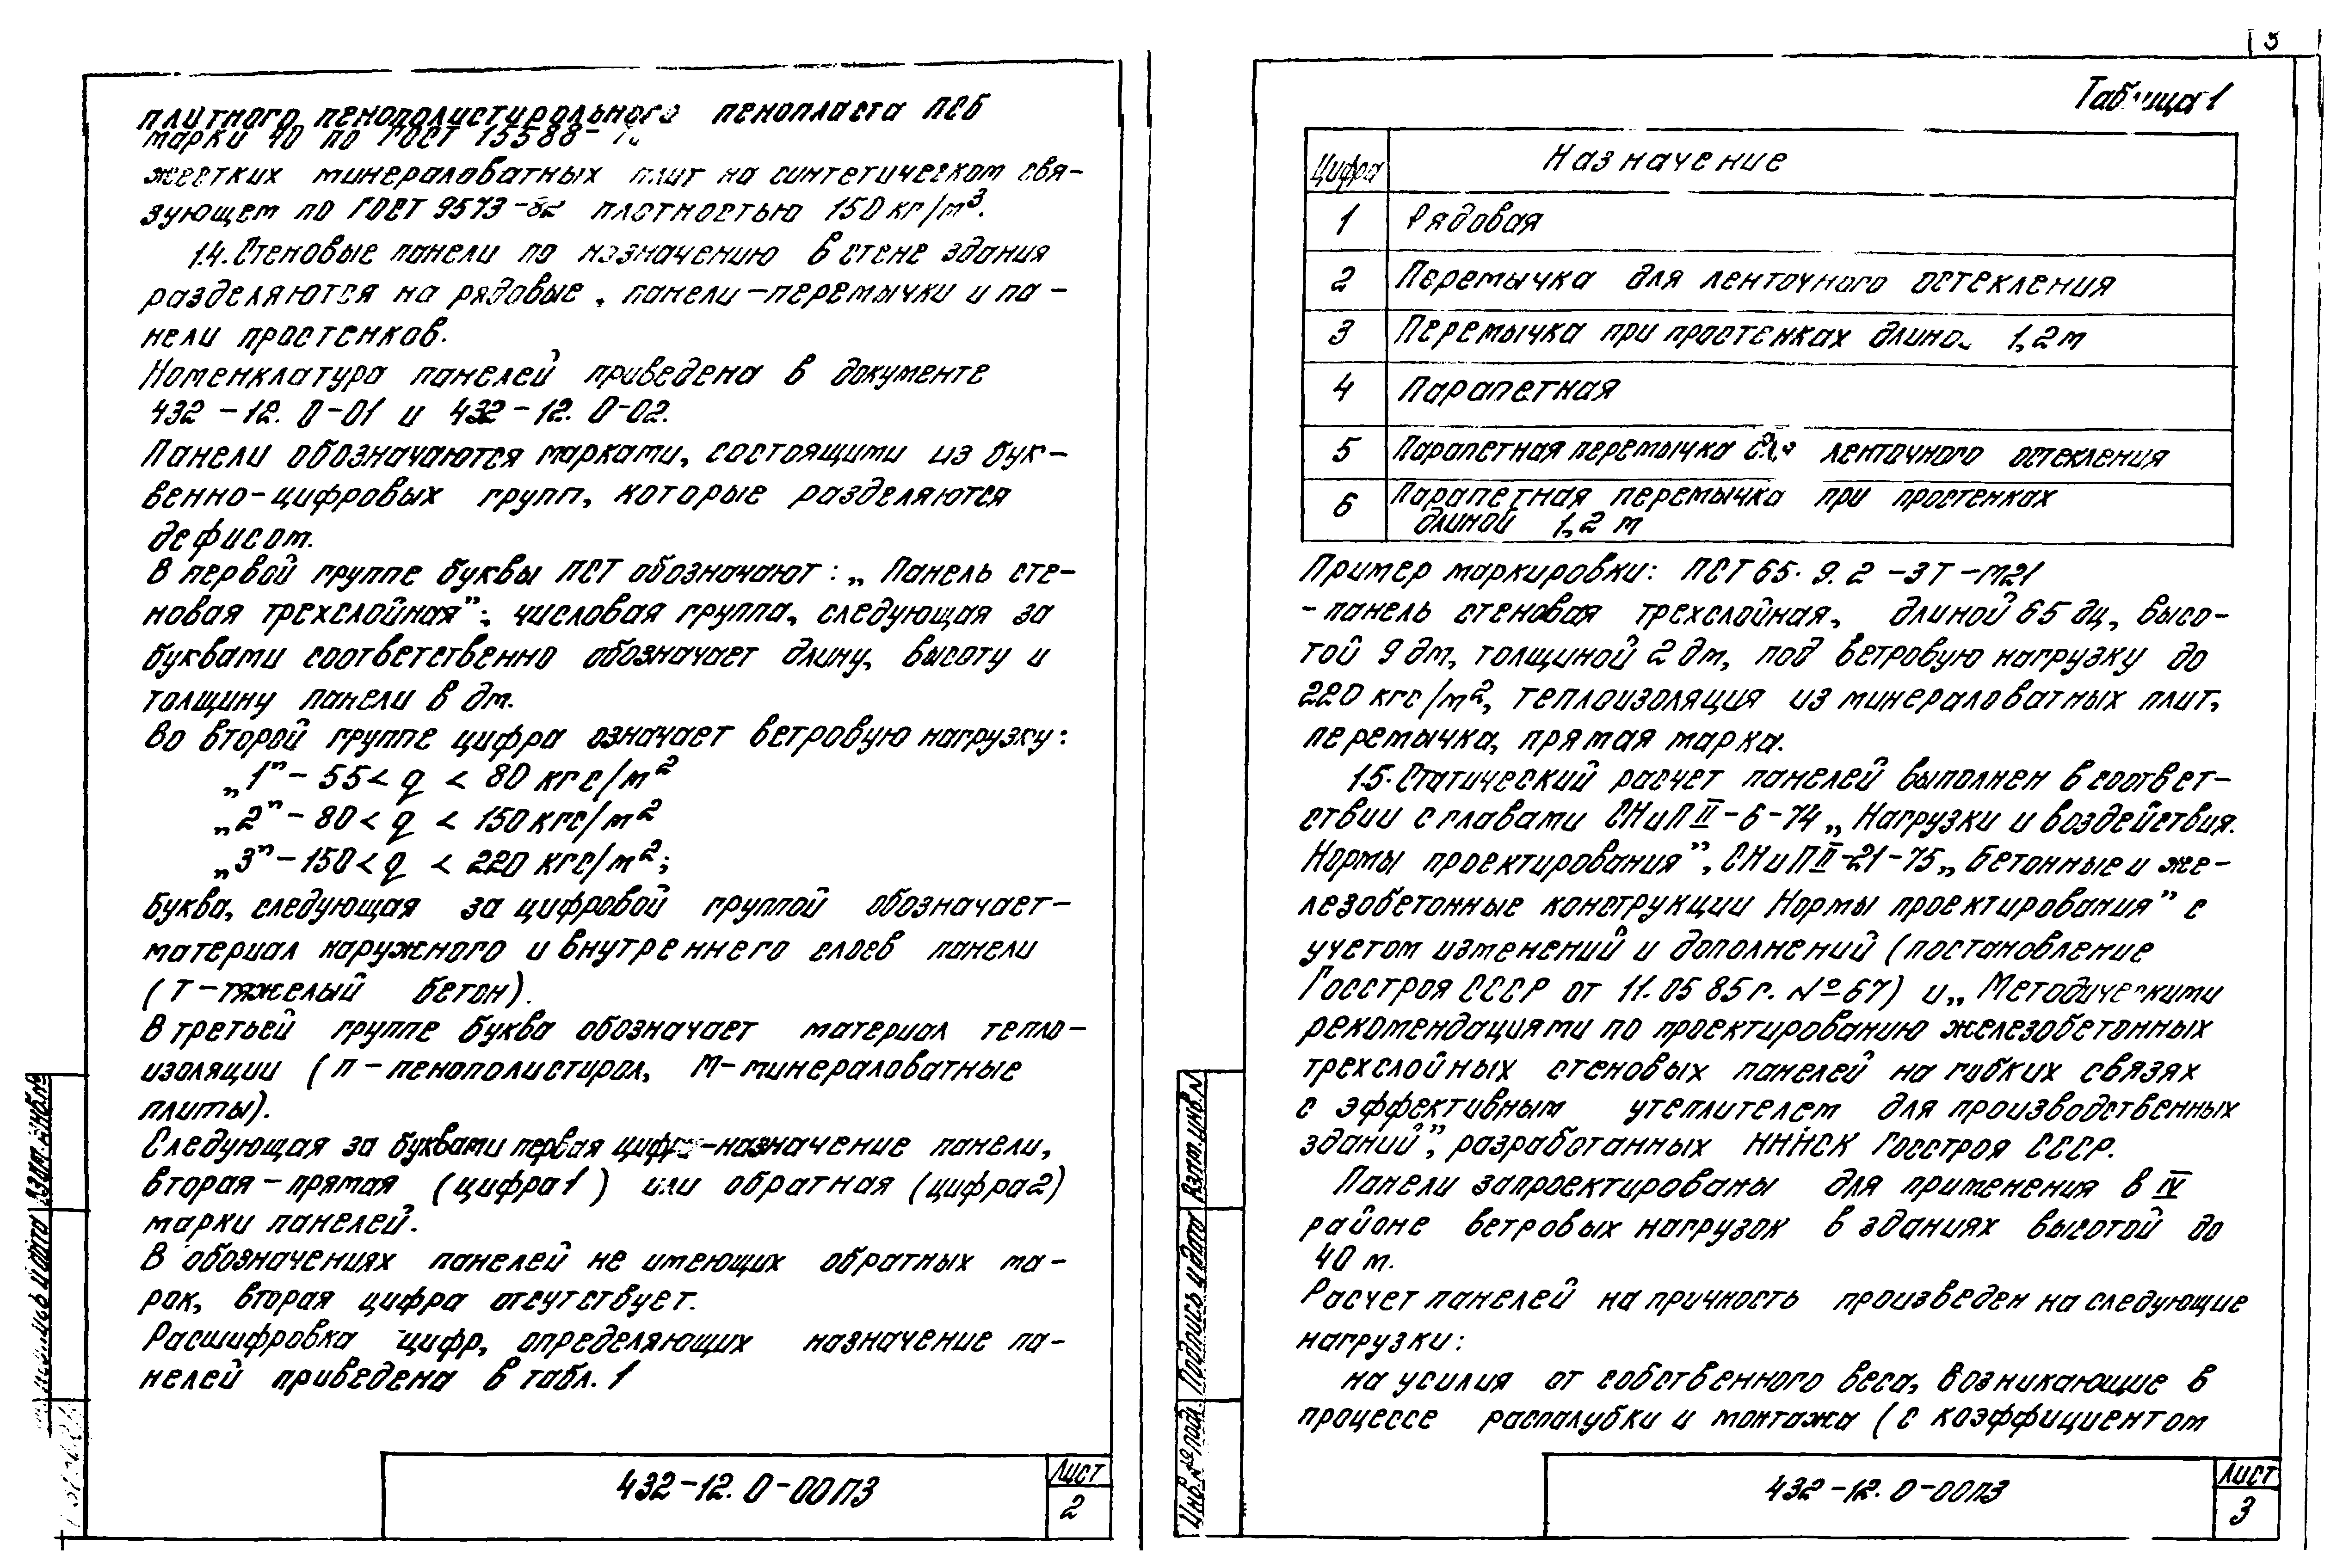 плитного пенополистирольного пенопласта ПСБ
марки 40 по ГОСТ 15588-
жестких минераловатных плит на синтетическом свя-
зующем по ГОСТ 9573-82 плотностью 150 кг/м³.
1.4. Стеновые панели по назначению в стене здания
разделяются на рядовые, панели-перемычки и па-
нели простенков.
Номенклатура панелей приведена в документе
432-12.0-01 и 432-12.0-02.
Панели обозначаются марками, состоящими из бук-
венно-цифровых групп, которые разделяются
дефисом.
В первой группе буквы ПСТ обозначают: „Панель сте-
новая трехслойная”; числовая группа, следующая за
буквами соответственно обозначает длину, высоту и
толщину панели в дм.
Во второй группе цифра означает ветровую нагрузку:
„1” - 55 < q < 80 кгс/м²
„2” - 80 < q < 150 кгс/м²
„3” - 150 < q < 220 кгс/м²;
буква, следующая за цифровой группой обозначает-
материал наружного и внутреннего слоев панели
(Т-тяжелый бетон).
В третьей группе буква обозначает материал тепло-
изоляции (П-пенополистирол, М-минераловатные
плиты).
Следующая за буквами первая цифра-назначение панели,
вторая-прямая (цифра 1) или обратная (цифра 2)
марки панелей.
В обозначениях панелей не имеющих обратных ма-
рок, вторая цифра отсутствует.
Расшифровка цифр, определяющих назначение па-
нелей приведена в табл. 1
432-12.0-00ПЗ
Лист
2
3
Таблица 1
Цифра Назначение
1 Рядовая
2 Перемычка для ленточного остекления
3 Перемычка при простенках длиной 1,2 м
4 Парапетная
5 Парапетная перемычка для ленточного остекления
6 Парапетная перемычка при простенках
длиной 1,2 м
Пример маркировки: ПСТ 65.9.2-3Т-М21
- панель стеновая трехслойная, длиной 65 дц, высо-
той 9 дм, толщиной 2 дм, под ветровую нагрузку до
220 кгс/м², теплоизоляция из минераловатных плит,
перемычка, прямая марка.
1.5. Статический расчет панелей выполнен в соответ-
ствии с главами СНиП II-6-74 „Нагрузки и воздействия.
Нормы проектирования”, СНиП II-21-75 „Бетонные и же-
лезобетонные конструкции Нормы проектирования” с
учетом изменений и дополнений (постановление
Госстроя СССР от 11.05 85 г. №67) и „Методическими
рекомендациями по проектированию железобетонных
трехслойных стеновых панелей на гибких связях
с эффективным утеплителем для производственных
зданий”, разработанных НИИСК Госстроя СССР.
Панели запроектированы для применения в IV
районе ветровых нагрузок в зданиях высотой до
40 м.
Расчет панелей на прочность произведен на следующие
нагрузки:
на усилия от собственного веса, возникающие в
процессе распалубки и монтажа (с коэффициентом
Инв.№ подл. Подпись и дата Взам.инв.N
432-12.0-00ПЗ
Лист
3